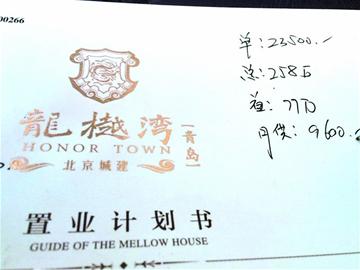 00266
单:23500.-
总:258万
首:77万
月供:9600.
龍樾湾
青岛
HONOR TOWN
北京城建
置业计划书
GUIDE OF THE MELLOW HOUSE